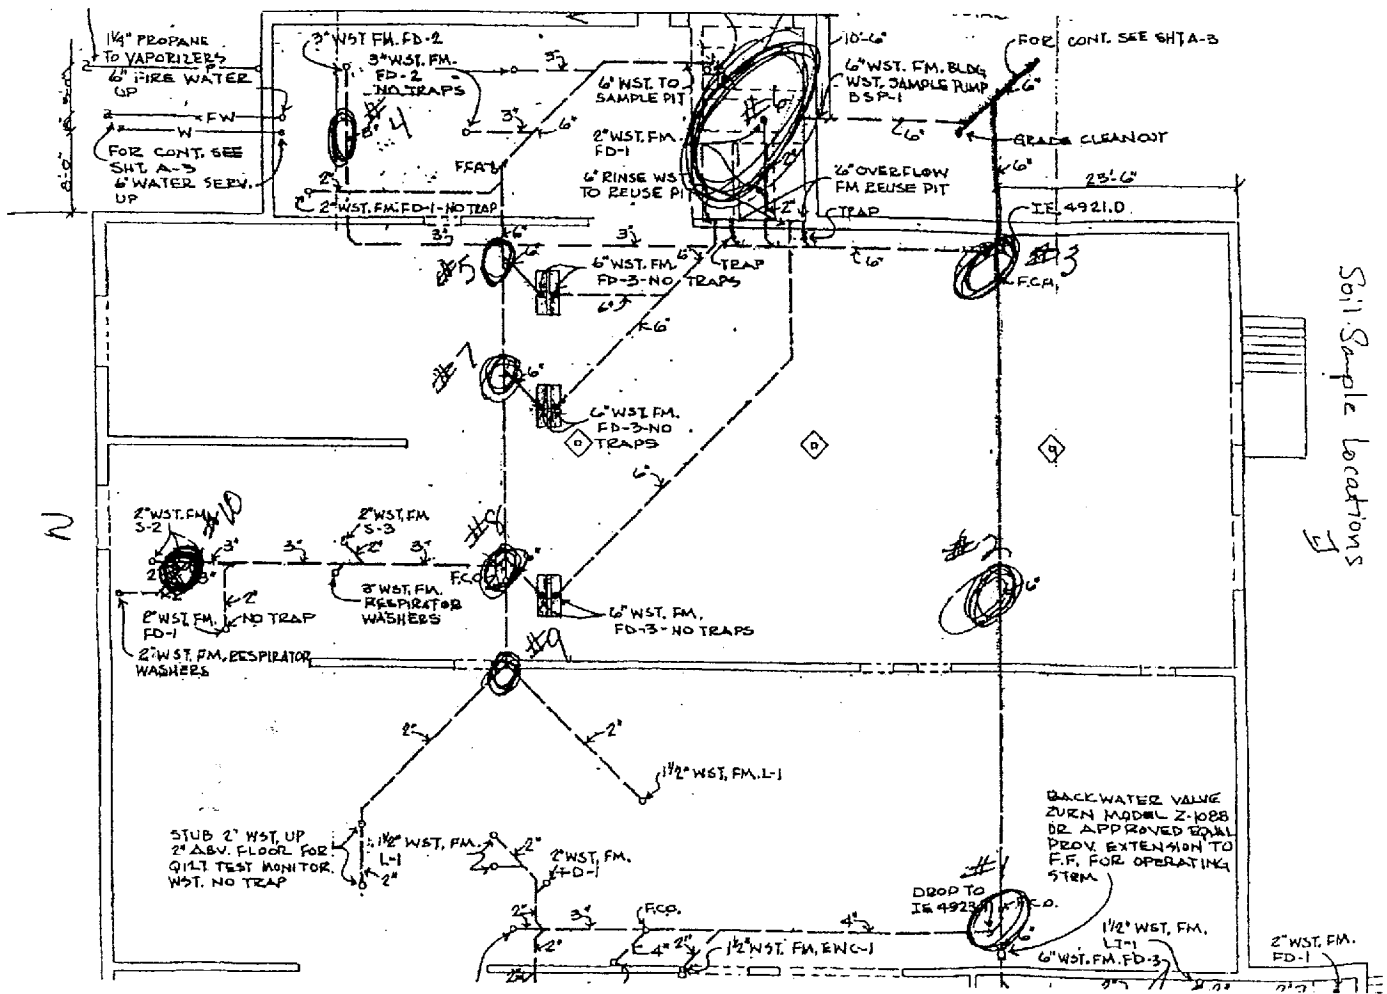 1¼" PROPANE
TO VAPORIZERS
6" FIRE WATER
UP
FW
W
FOR CONT. SEE
SHT. A-3
6" WATER SERV.
UP
8'-0"
3" WST FM. FD-2
3" WST. FM.
FD-2
NO TRAPS
3"
#4
3"
3"
6"
F.C.O.
2"
2" WST. FM. FD-1-NO TRAP
6" WST. TO
SAMPLE PIT
2" WST. FM.
FD-1
6" RINSE WS
TO REUSE PI
#6
2"
2"
10'-6"
6" WST. FM. BLDG
WST. SAMPLE PUMP
BSP-1
6"
6" OVERFLOW
FM REUSE PIT
TRAP
FOR CONT. SEE SHT. A-3
6"
GRADE CLEANOUT
6"
23'-6"
I.E. 4921.0
#3
F.C.O.
3"
6"
3"
6"
TRAP
6"
#5
6"
6" WST. FM.
FD-3-NO TRAPS
6"
6"
#7
6"
6" WST. FM.
FD-3-NO
TRAPS
6"
Soil Sample Locations
II
N
2" WST. FM.
S-2
#10
2" WST. FM.
S-3
#8
#2
3"
3"
2"
3"
F.C.O.
6"
2"
3"
2"
6"
2" WST. FM.
FD-1
NO TRAP
3" WST. FM.
RESPIRATOR
WASHERS
6" WST. FM.
FD-3-NO TRAPS
2" WST. FM. RESPIRATOR
WASHERS
#9
2"
2"
1½" WST. FM. L-1
STUB 2" WST. UP
2" ABV. FLOOR FOR
QILT TEST MONITOR
WST. NO TRAP
1½" WST. FM.
L-1
2"
2"
2" WST. FM.
FD-1
BACKWATER VALVE
ZURN MODEL Z-1088
OR APPROVED EQUAL
PROV. EXTENSION TO
F.F. FOR OPERATING
STEM
#1
DROP TO
IE 4923
F.C.O.
2"
3"
F.C.O.
4"
6"
2"
4"
2"
1½" WST. FM. EWC-1
6" WST. FM. FD-3
1½" WST. FM.
LT-1
2" WST. FM.
FD-1
2"